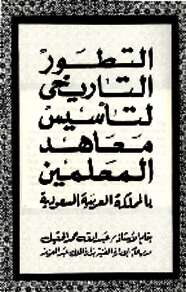 التطور
التاريخى
لتأسيس
معاهد
المعلمين
بالمملكة العربية السعودية
بقلم الأستاذ / عبدالله محمد
الملك عبدالعزيز